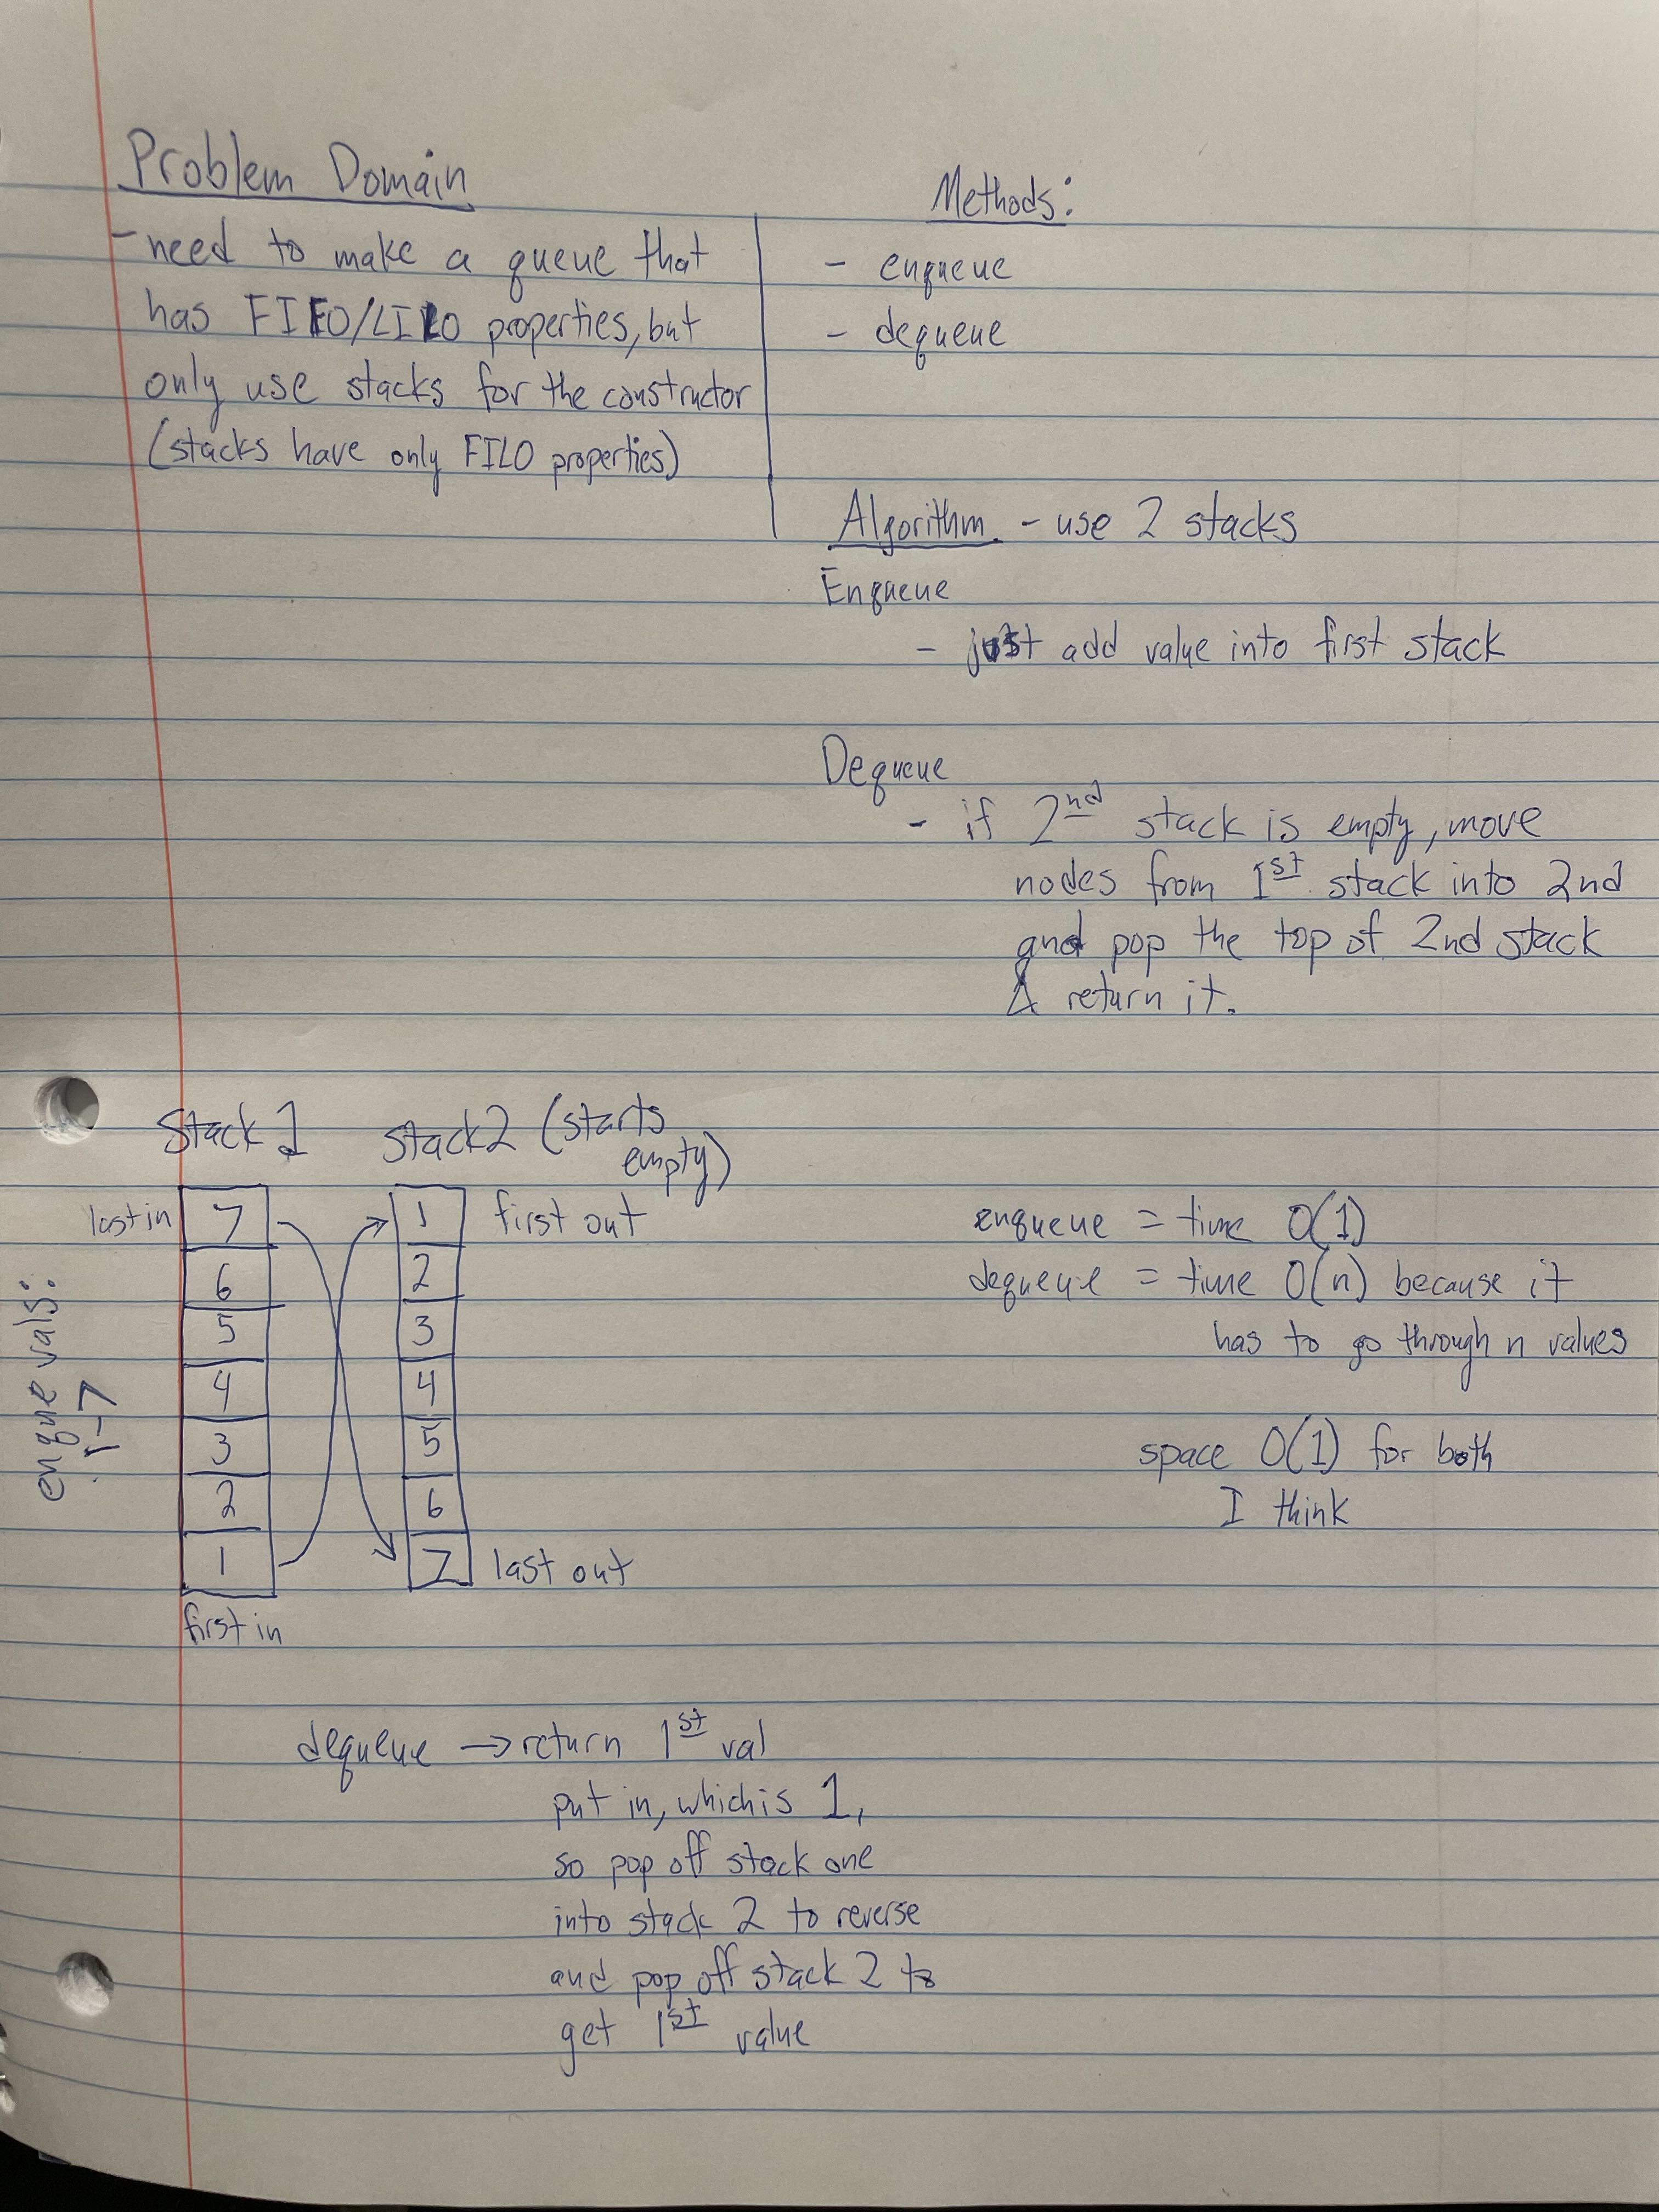 Problem Domain
- need to make a queue that
has FIFO/LILO properties, but
only use stacks for the constructor
(stacks have only FILO properties)
Methods:
- enqueue
- dequeue
Algorithm - use 2 stacks
Enqueue
- just add value into first stack
Dequeue
- if 2nd stack is empty, move
nodes from 1st stack into 2nd
and pop the top of 2nd stack
& return it.
Stack 1
Stack 2 (starts
empty)
last in
7
6
5
4
3
2
1
first in
enque vals:
1-7
1
2
3
4
5
6
7
first out
last out
enqueue = time O(1)
dequeue = time O(n) because it
has to go through n values
space O(1) for both
I think
dequeue → return 1st val
put in, which is 1,
so pop off stack one
into stack 2 to reverse
and pop off stack 2 to
get 1st value